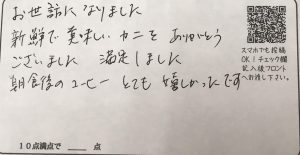 お世話になりました
新鮮で美味しいカニをありがとう
ございました 満足しました
朝食後のコーヒー とても嬉しかったです
スマホでも投稿
OK!チェック欄
記入後フロント
へお渡し下さい。
10点満点で 点